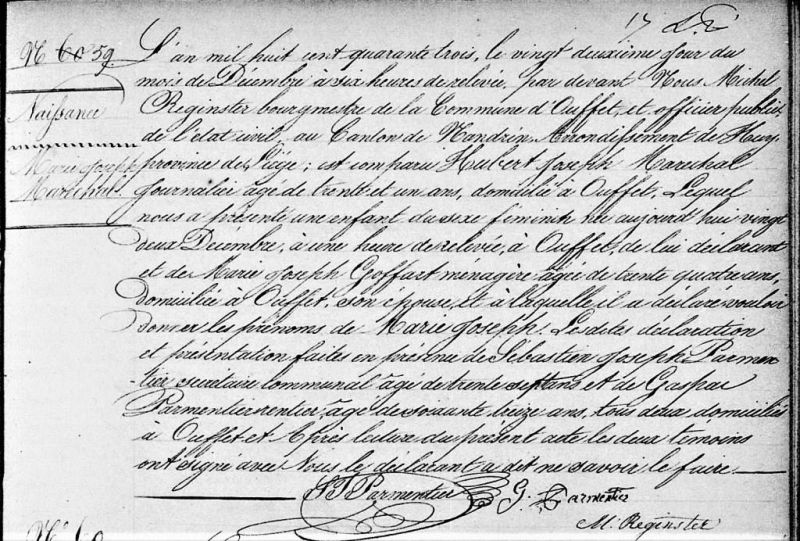 N° 59.
Naissance
Marie Joseph
Maréchal.
L'an mil huit cent quarante trois, le vingt deuxième jour du
mois de Décembre à six heures de relevée, par devant Nous Michel
Reginster bourgmestre de la Commune d'Ouffet, et officier public
de l'etat civil, au Canton de Nandrin Arrondissement de Huy,
province de Liège; est comparu Hubert Joseph Marechal
Journalier âgé de trente et un ans, domicilié à Ouffet, Lequel
nous a présenté une enfant du sexe feminin née aujourd'hui vingt
deux Décembre, à une heure de relevée, à Ouffet, de lui déclarant
et de Marie Joseph Goffart ménagère âgée de trente quatre ans,
domiciliée à Ouffet, son épouse, et à laquelle il a déclaré vouloir
donner les prénoms de Marie Joseph. Lesdites déclaration
et présentation faites en présence de Sébastien Joseph Parmen
-tier secrétaire communal âgé de trente sept ans et de Gaspar
Parmentier rentier, âgé de soixante treize ans, tous deux domiciliés
à Ouffet et Après lecture du présent acte les deux témoins
ont signé avec Nous le déclarant a dit ne savoir le faire.
S J Parmentier G. Parmentier
M. Reginster